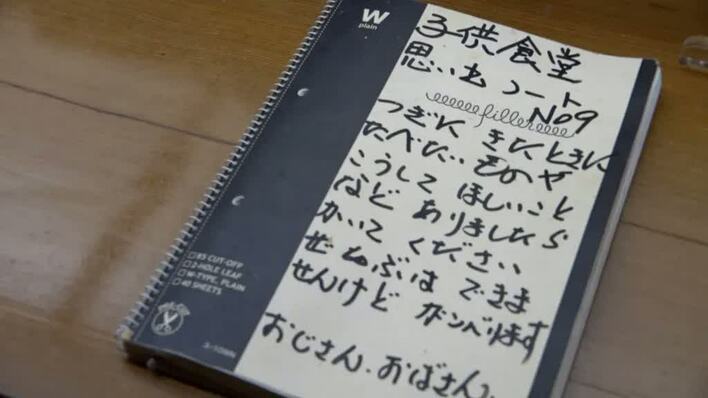 W
plain
子供食堂
思い出ノート
filler
No9
つぎに きたときに
たべたいものや
こうして ほしいこと
など ありましたら
かいて ください
ぜんぶは できま
せんけど ガンバリます
おじさん、おばさん、
B5 CUT-OFF
2-HOLE LEAF
W-TYPE, PLAIN
40 SHEETS